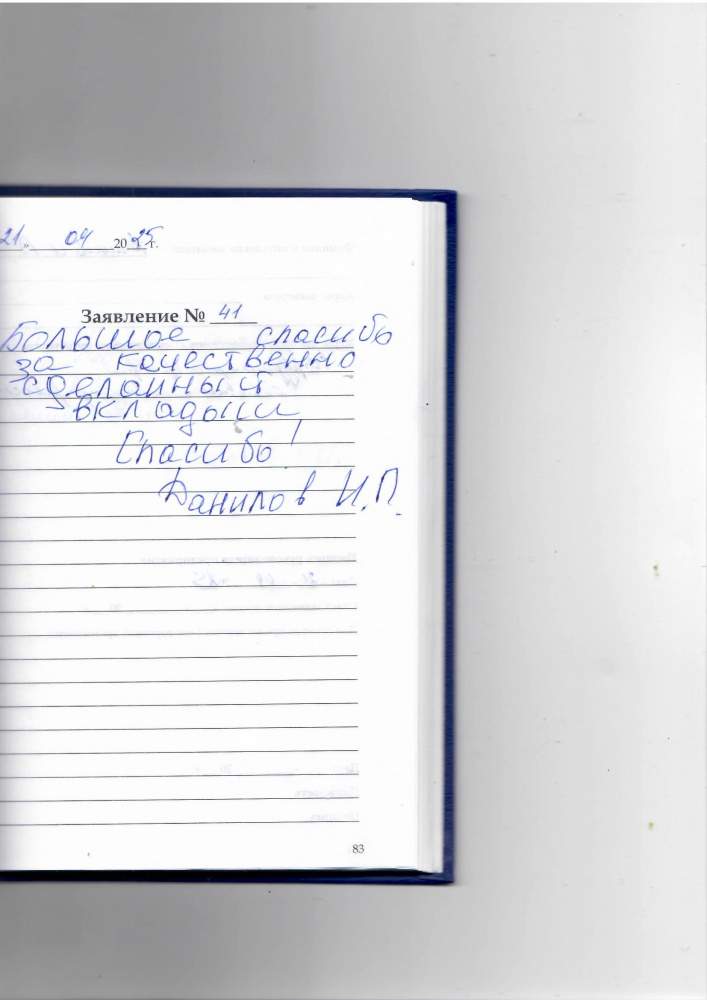 21 " 04 2025 г.
Заявление № 41
Большое спасибо
за качественно
сделанный
вкладыш
Спасибо!
Данилов И.П.
83